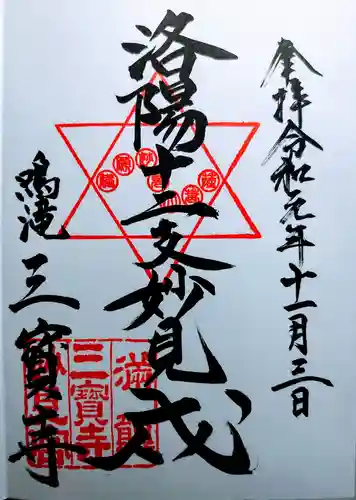 奉拝 令和元年十一月三日
洛陽十二支妙見 戌
鳴滝 三寳寺
三寳寺